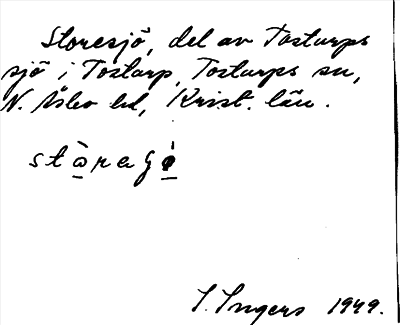 Storesjö, del av Tostarps
sjö i Tostarp, Tostarps sn,
N. Åsbo hd, Krist. län.
I. Ingers 1949.